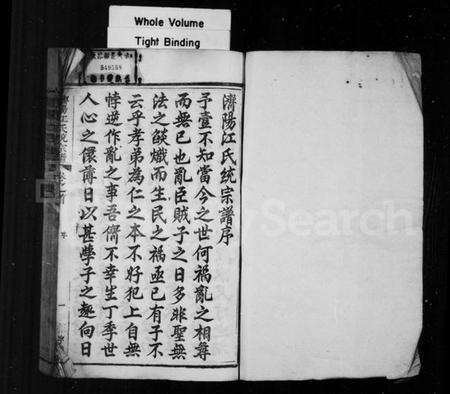 Whole Volume
Tight Binding
549559
濟陽江氏統宗譜序
予壹不知當今之世何禍亂之相尋
而無已也亂臣賊子之日多非聖無
法之燄熾而生民之禍亟已有子不
云乎孝弟為仁之本不好犯上自無
悖逆作亂之事吾儕不幸生丁季世
人心之儇薄日以甚學子之趨向日